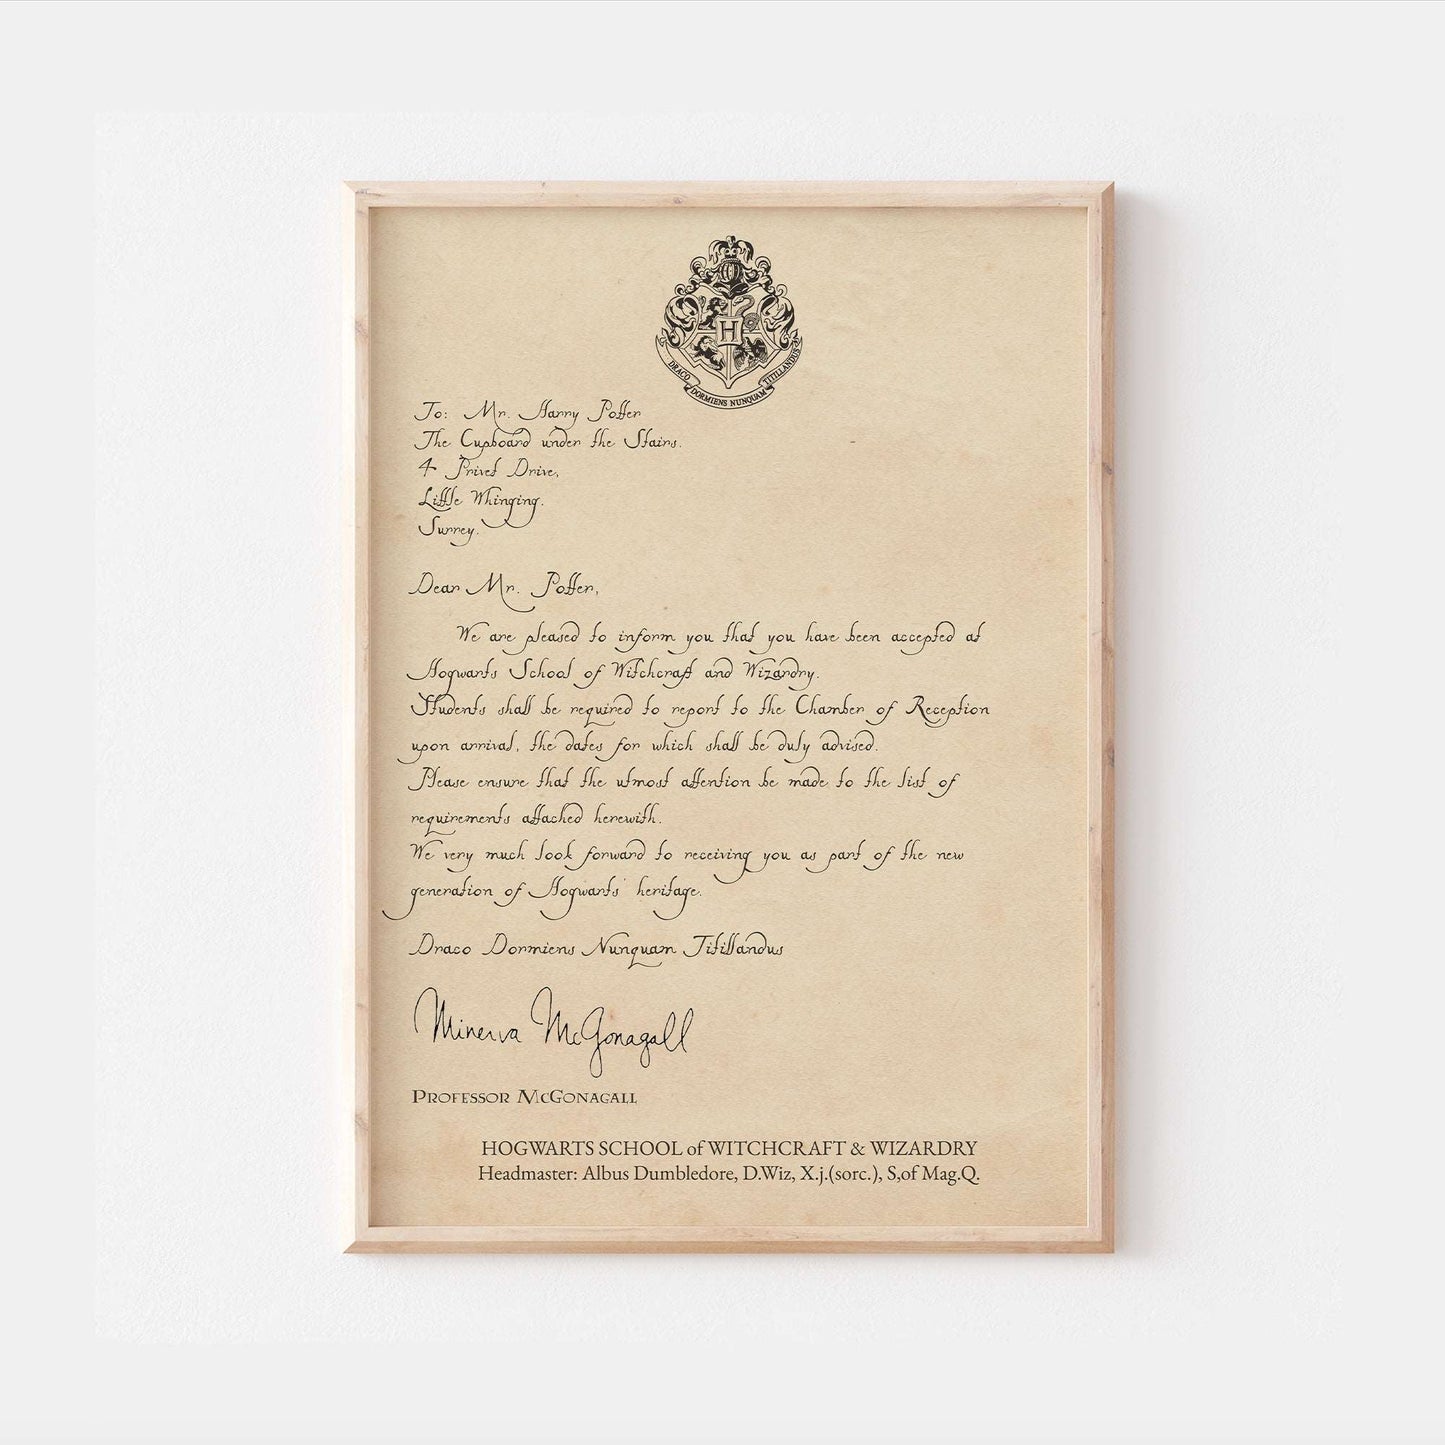 H
DRACO DORMIENS NUNQUAM TITILLANDUS
To: Mr. Harry Potter
The Cupboard under the Stairs,
4 Privet Drive,
Little Whinging,
Surrey.
Dear Mr. Potter,
We are pleased to inform you that you have been accepted at
Hogwarts School of Witchcraft and Wizardry.
Students shall be required to report to the Chamber of Reception
upon arrival, the dates for which shall be duly advised.
Please ensure that the utmost attention be made to the list of
requirements attached herewith.
We very much look forward to receiving you as part of the new
generation of Hogwarts' heritage.
Draco Dormiens Nunquam Titillandus
Minerva McGonagall
PROFESSOR MCGONAGALL
HOGWARTS SCHOOL of WITCHCRAFT & WIZARDRY
Headmaster: Albus Dumbledore, D.Wiz, X.j.(sorc.), S,of Mag.Q.